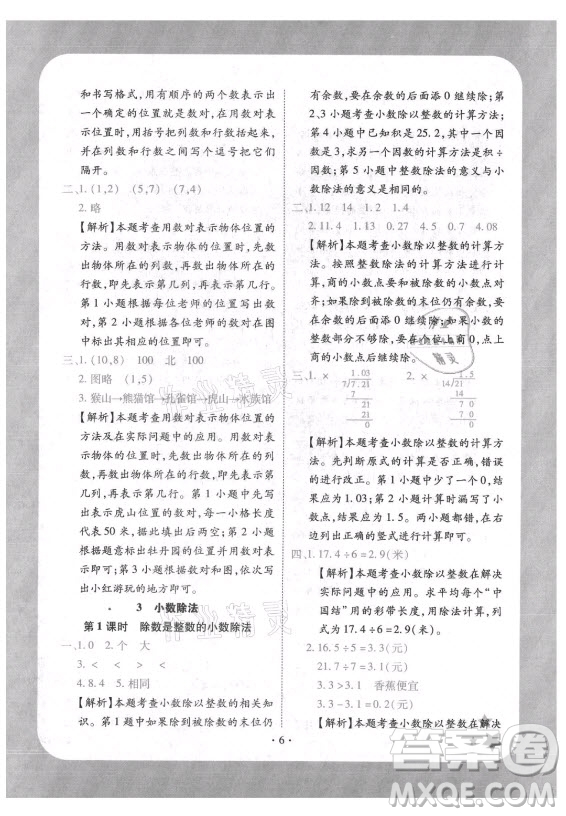 和书写格式，用有序的两个数表示出
一个确定的位置就是数对，用数对表
示位置时，用括号把列数和行数括起来，
并在列数和行数之间写一个逗号把它们
隔开。
二、1.(1,2)　(5,7)　(7,4)
2.略
【解析】本题考查用数对表示物体位置的
方法。用数对表示物体的位置时，先数
出物体所在的列数，再数出物体所在的
行数，即先表示第几列，再表示第几行。
第 1 小题根据每位老师的位置写出数
对，第 2 小题根据各位老师的数对在图
中标出具体位置即可。
三、1.(10,8)　100　北　100
2.图略　(1,5)
3.猴山→熊猫馆→孔雀馆→虎山→水族馆
【解析】本题考查用数对表示物体位置的
方法及在实际问题中的应用。用数对表
示物体的位置时，先数出物体所在的列
数，再数出物体所在的行数，即先表示第
几列，再表示第几行，每一小格长度
代表 50 米，据此填出后两空；第 2 小题
根据题意标出牡丹园的位置，根据图意
写出虎山位置的数对；第 3 小题根据数
对找出相应的位置，并按照顺序依次写
出小红游玩的地方即可。
3　小数除法
第 1 课时　除数是整数的小数除法
一、1.0　2.个　大
3.＜　＜　＜　＞
4.8.4　5.相同
【解析】本题考查小数除以整数的相关知
识。第 1 小题中如果除到被除数的末位仍
有余数，要在余数的后面添 0 继续除；第
2,3 小题考查小数除以整数的计算方法；
第 4 小题中已知积是 25.2，其中一个因
数是 3，求另一个因数的计算方法用除
法计算；第 5 小题中整数除法的意义与小
数除法的意义是相同的。
二、1.12　14　1.2　1.4
2.0.18　1.13　0.27　0.75　4.08
【解析】本题考查小数除以整数的计算方
法。按照整数除法的计算方法进行计
算，商的小数点要与被除数的小数点对
齐；如果除到被除数的末位仍有余数，要
在余数后面添 0 再继续除。如果小数的
整数部分不够除，要在个位上商 0，点上
小数点后继续除。
三、1.×　1.03　2.×　1.5
7/7.21　14/21
7　14
21　70
21　70
0　0
【解析】本题考查小数除以整数的计算方
法。先判断原式的计算是否正确，错误
的进行改正。第 1 小题中计算时商的中
间漏写 0，应为 1.03；第 2 小题计算时漏写了小
数点，应为 1.5。两小题都错，在虚线
的右边写出正确的竖式计算即可。
四、1.17.4÷6＝2.9(米)
【解析】本题考查小数除以整数在解决
实际问题中的应用。求平均每个“中国
结”用的彩带的长度，用除法计算，列式
为 17.4÷6＝2.9(米)。
2.16.5÷5＝3.3(元)
21.7÷7＝3.1(元)
3.3＞3.1　香蕉便宜
3.3－3.1＝0.2(元)
【解析】本题考查小数除以整数在解决
·6·
作业精灵
答案圈
MXQE.COM